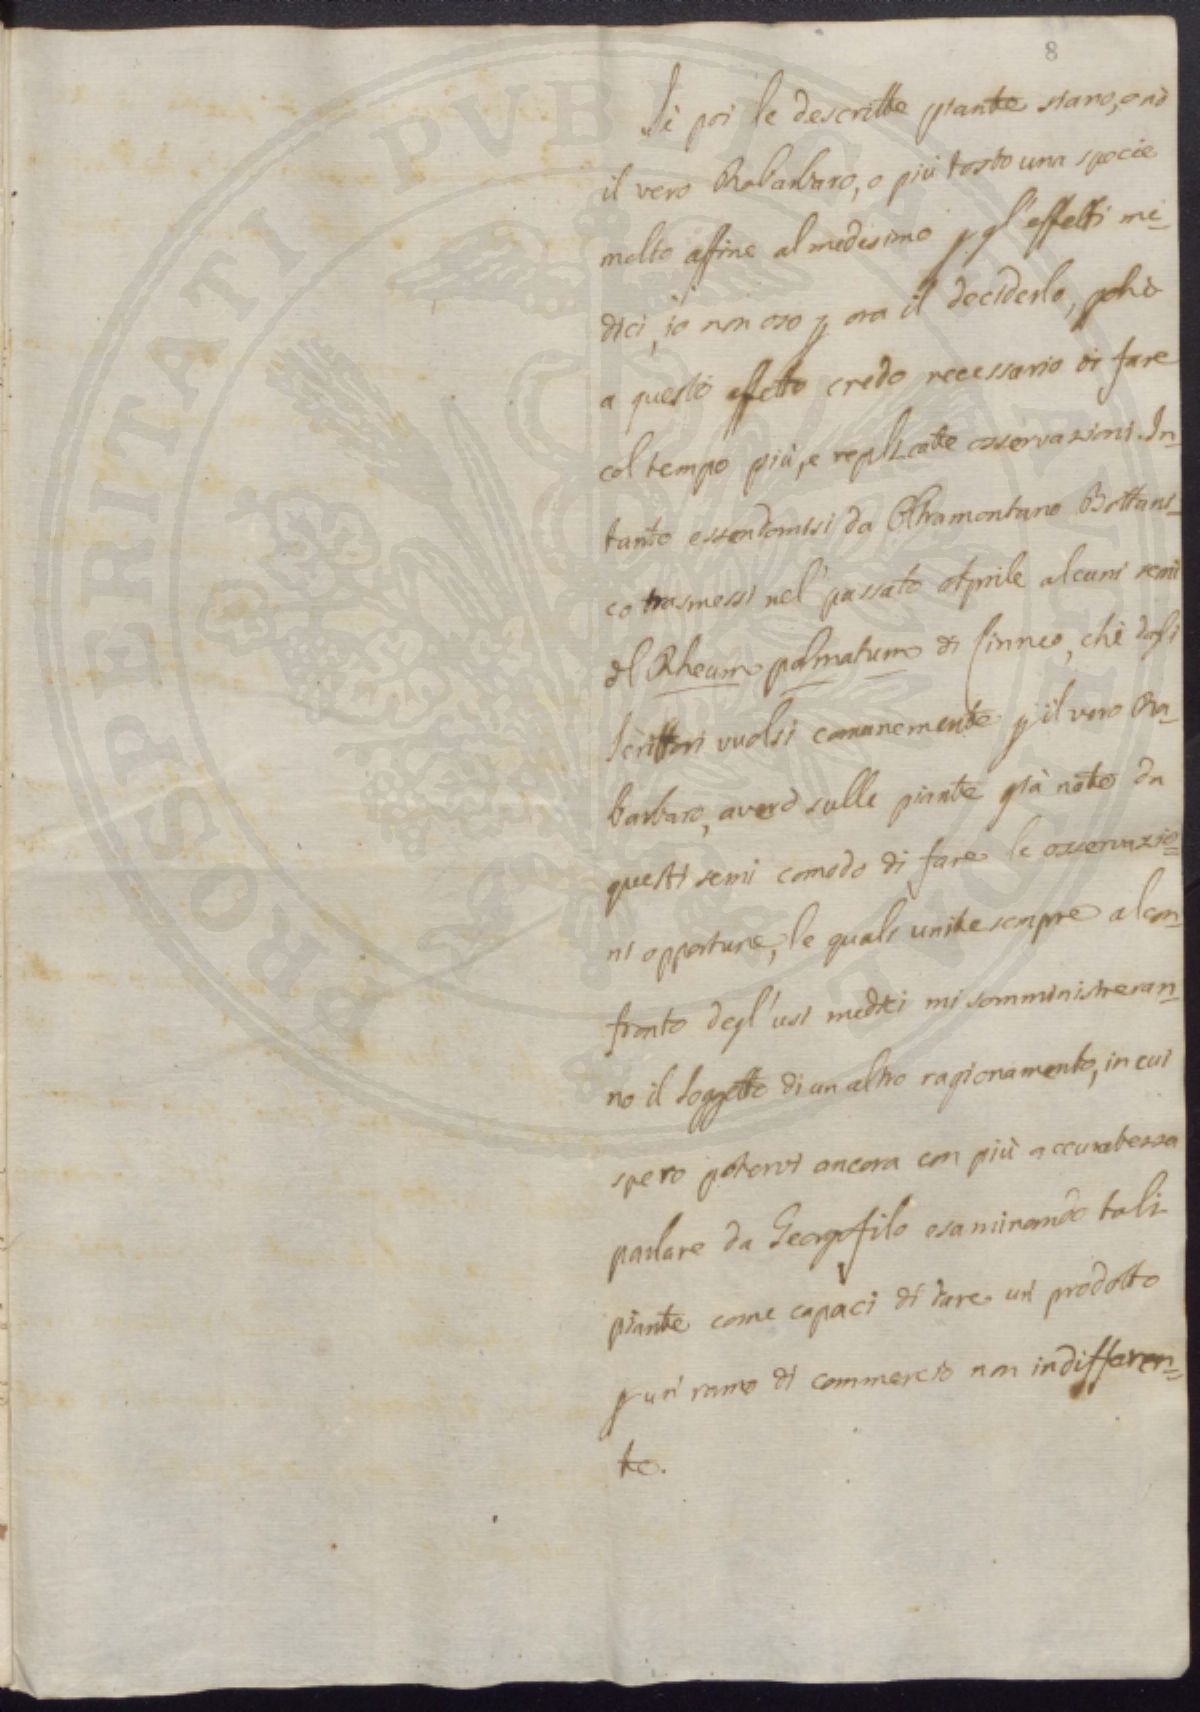 8
Se poi le descritte piante siano, o nò
il vero Rabarbaro, o più tosto una specie
molto affine al medesimo p gl'effetti me-
dici, io non oso p ora il deciderlo, pchè
a questo effetto credo necessario di fare
col tempo più, e replicate osservazioni. In-
tanto essendomisi da Oltramontano Bottani-
co trasmessi nel passato Aprile alcuni semi
del Rheum palmatum di Linneo, che dagli
Scrittori vuolsi comunemente p il vero Ra-
barbaro, averò sulle piante già nate da
questi semi comodo di fare le osservazio=
ni opportune, le quali unite sempre al con-
fronto degl'usi medici mi somministreran-
no il Soggetto di un altro ragionamento, in cui
spero potervi ancora con più accuratezza
parlare da Georgofilo esaminando tali
piante come capaci di dare un prodotto
p un ramo di commercio non indifferen=
te.
PROSPERITATI PVBLICAE AVGENDAE